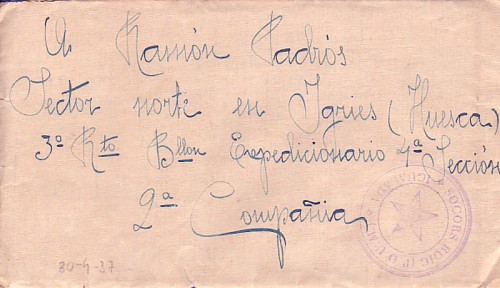 A Ramón Padrós
Sector norte en Igries (Huesca)
3º Rto Bllon Expedicionario 4ª Sección
2ª Compañia
SOCORS ROIG (P.O.U.M.) IGUALADA
30-4-37